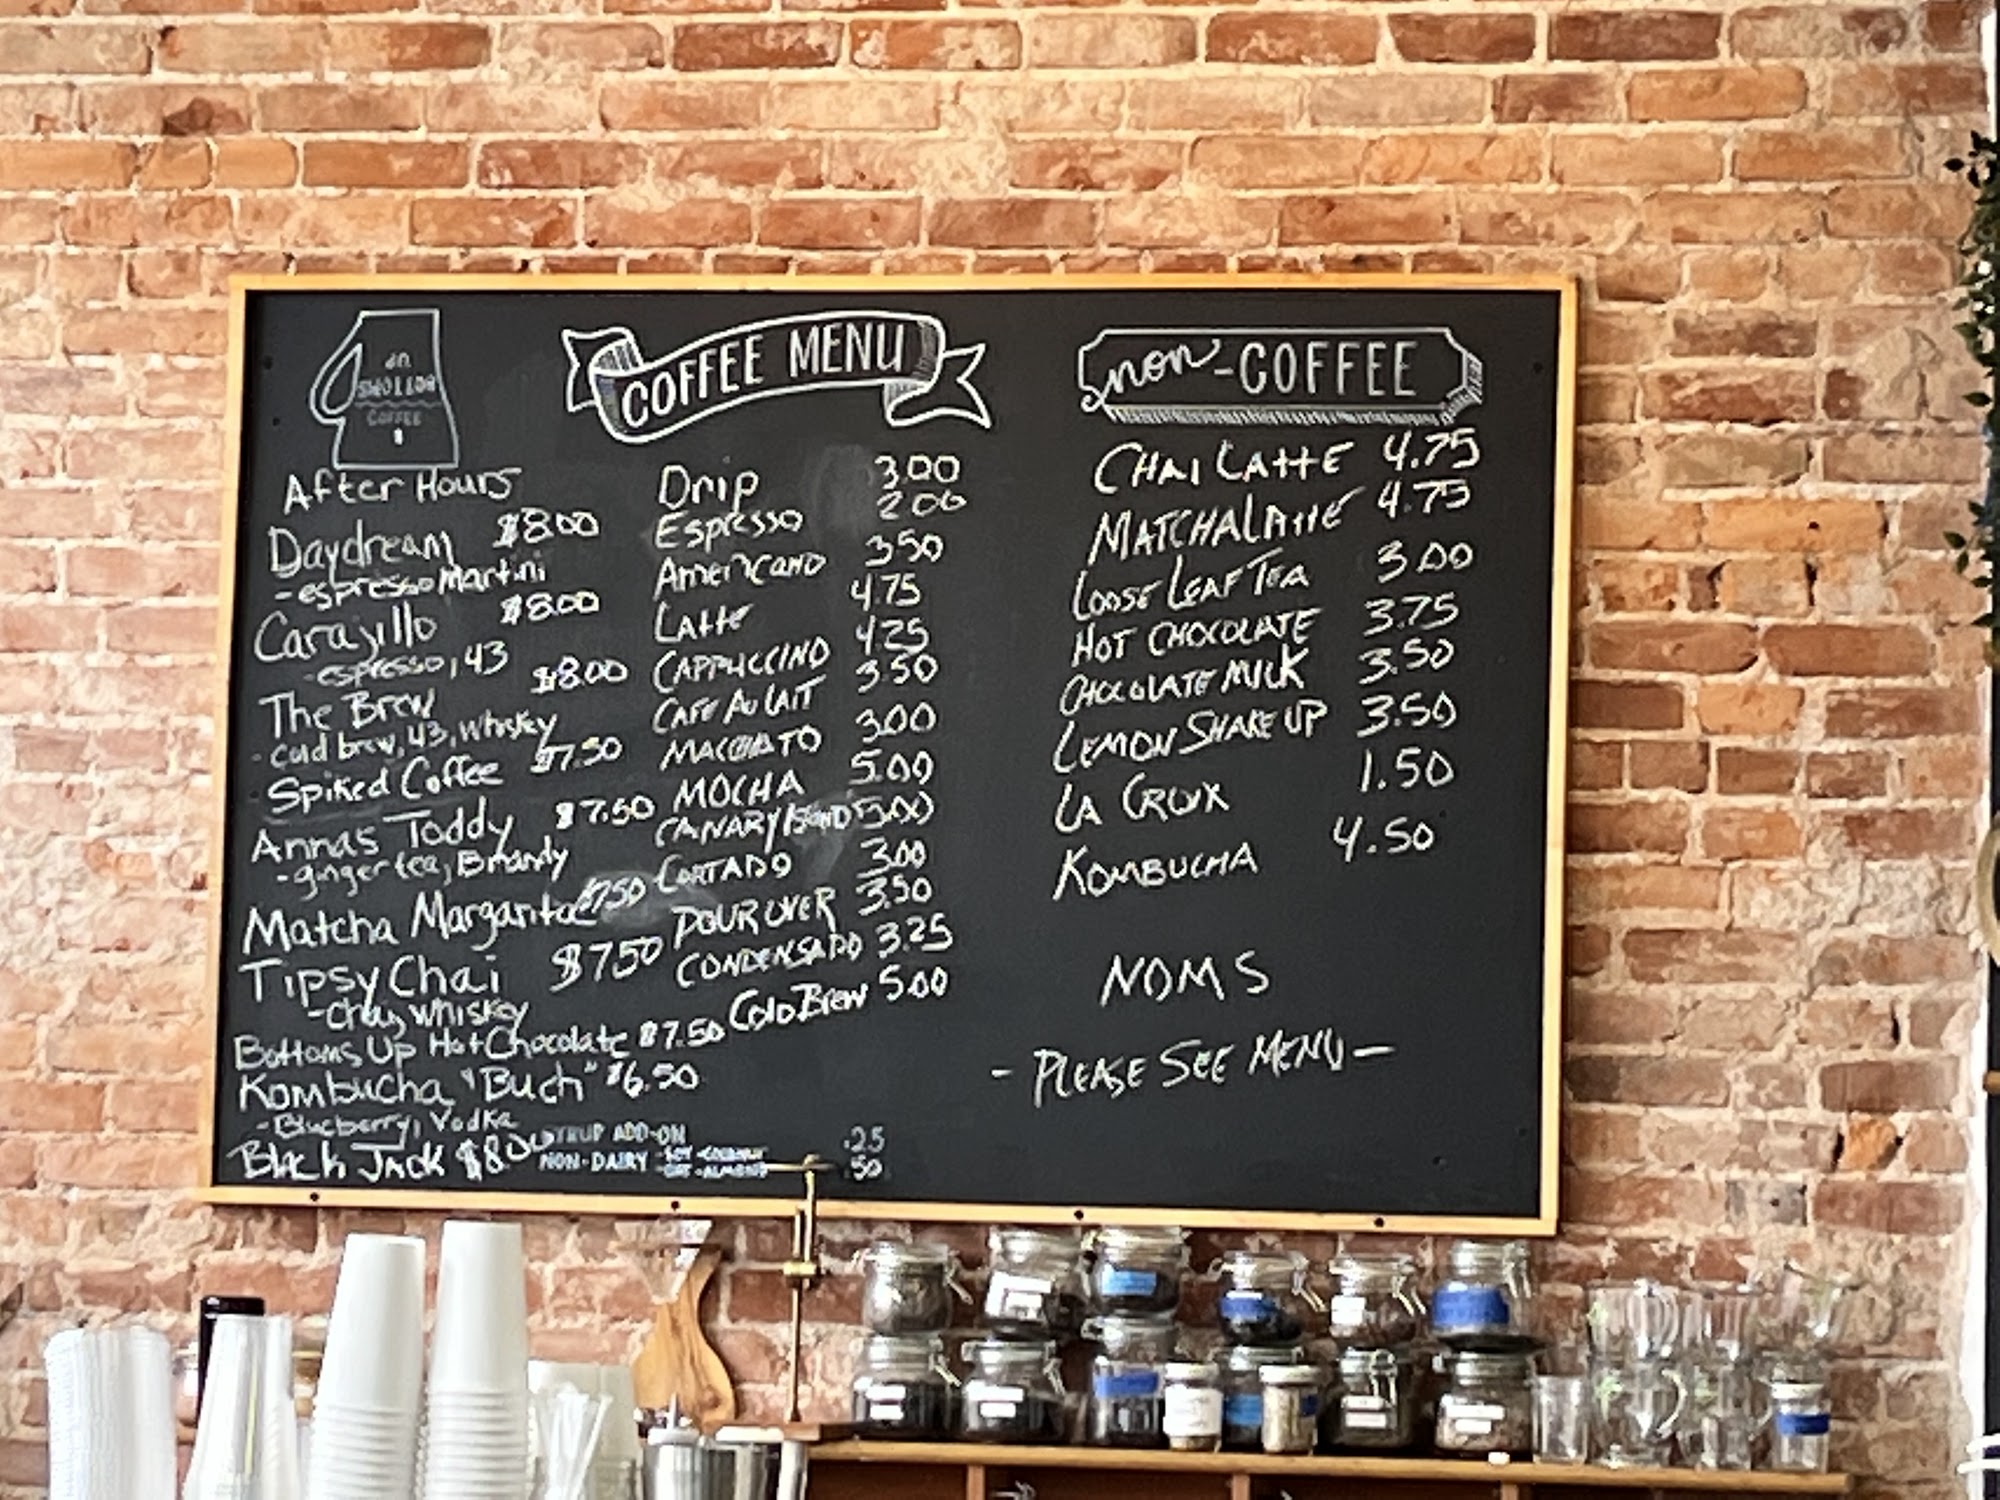 SWOLLEN
COFFEE
After Hours
Daydream $8.00
-espresso Martini
Carajillo $8.00
-espresso, 43
The Brew $8.00
-cold brew, 43, Whiskey
Spiked Coffee $7.50
Annas Toddy $7.50
-ginger tea, Brandy
Matcha Margarita $7.50
Tipsy Chai $7.50
-Chai, Whiskey
Bottoms Up Hot Chocolate $7.50
Kombucha "Buch" $6.50
-Blueberry, Vodka
Black Jack $8.00
COFFEE MENU
Drip 3.00
Espresso 2.00
Americano 3.50
Latte 4.75
CAPPUCCINO 4.25
CAFE AU LAIT 3.50
MACCHIATO 3.00
MOCHA 5.00
CANARY ISLAND 5.00
CORTADO 3.00
POUR OVER 3.50
CONDENSADO 3.25
Cold Brew 5.00
SYRUP ADD-ON .25
NON-DAIRY -SOY -COCONUT .50
-OAT -ALMOND
non-COFFEE
CHAI LATTE 4.75
MATCHA LATTE 4.75
LOOSE LEAF TEA 3.00
HOT CHOCOLATE 3.75
CHOCOLATE MILK 3.50
LEMON SHAKE UP 3.50
LA CROIX 1.50
KOMBUCHA 4.50
NOMS
- PLEASE SEE MENU -